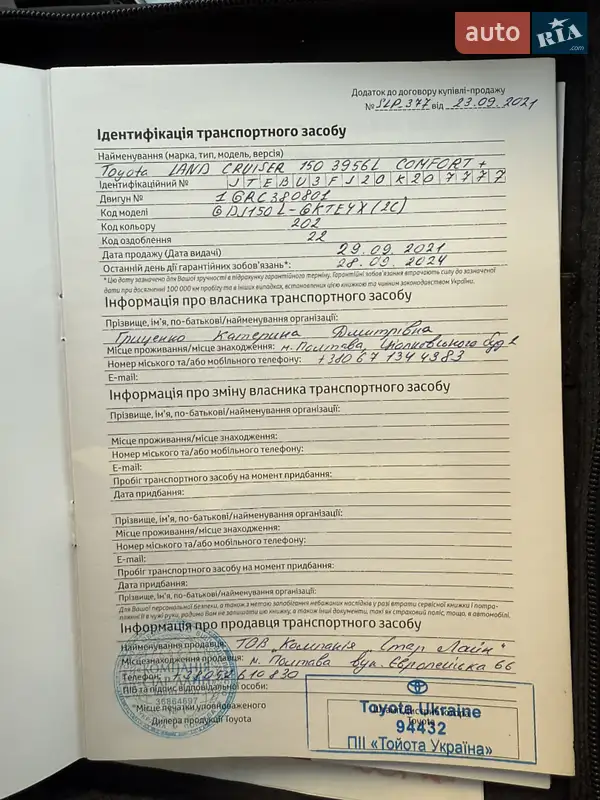 auto RIA .com
Додаток до договору купівлі-продажу
№ SLP 377 від 23.09.2021
Ідентифікація транспортного засобу
Найменування (марка, тип, модель, версія)
Toyota LAND CRUISER 150 3956L COMFORT+
Ідентифікаційний № JTEBU3FJ20K207777
Двигун № 1GRC380801
Код моделі GDJ150L-GKTEYX(2C)
Код кольору 202
Код оздоблення 22
Дата продажу (Дата видачі) 29.09.2021
Останній день дії гарантійних зобов'язань*: 28.09.2024
*Цю дату зазначено для Вашої зручності в підрахунку гарантійного терміну. Гарантійні зобов'язання втрачають силу до зазначеної
дати при досягненні 100 000 км пробігу та в інших випадках, встановлених цією книжкою та чинним законодавством України.
Інформація про власника транспортного засобу
Прізвище, ім'я, по-батькові/найменування організації:
Грищенко Катерина Дмитрівна
Місце проживання/місце знаходження: м. Полтава,
Номер міського та/або мобільного телефону: +38067 134 4383
E-mail:
Інформація про зміну власника транспортного засобу
Прізвище, ім'я, по-батькові/найменування організації:
Місце проживання/місце знаходження:
Номер міського та/або мобільного телефону:
E-mail:
Пробіг транспортного засобу на момент придбання:
Дата придбання:
Прізвище, ім'я, по-батькові/найменування організації:
Місце проживання/місце знаходження:
Номер міського та/або мобільного телефону:
E-mail:
Пробіг транспортного засобу на момент придбання:
Дата придбання:
Прізвище, ім'я, по-батькові/найменування організації:
Для Вашої персональної безпеки, а також з метою запобігання небажаних наслідків у разі втрати сервісної книжки і потра-
пляння її в чужі руки, радимо Вам не залишати цю книжку, а також інші документи, такі як страховий поліс, тощо, в автомобілі.
Інформація про продавця транспортного засобу
Найменування продавця: ТОВ „Компанія „Стар Лайн"
Місцезнаходження продавця: м. Полтава вул. Європейська 66
Телефон:
ПІБ та підпис відповідальної особи:
*Місце печатки уповноваженого
Дилера продукції Toyota
КОМПАНІЯ
36864697
Toyota Ukraine
94432
Toyota
ПІІ «Тойота Україна»